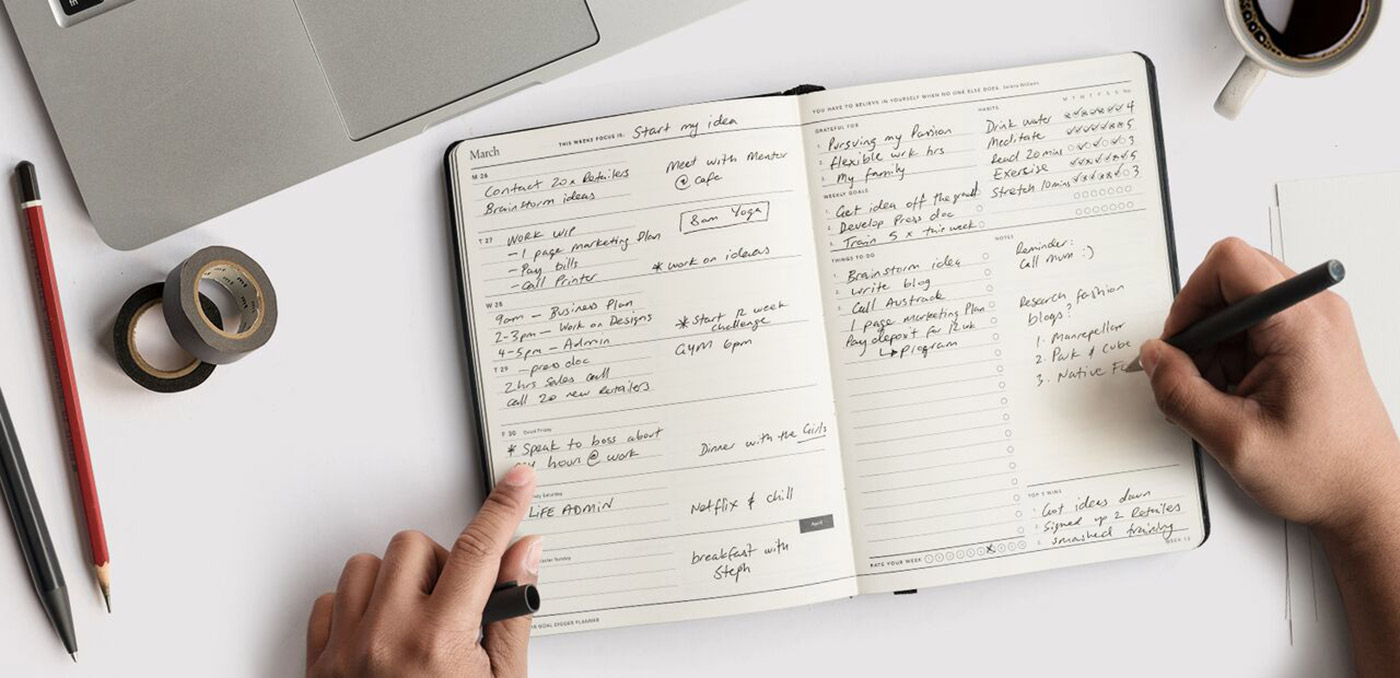 March
THIS WEEKS FOCUS IS: Start my idea
M 26
Contact 20x Retailers
Brainstorm ideas
Meet with Mentor
@ cafe
T 27
WORK WIP
- 1 page marketing Plan
- Pay bills
- Call Printer
8am Yoga
* work on ideas
W 28
9am - Business Plan
2-3pm - Work on Designs
4-5pm - Admin
* Start 12 week
challenge
GYM 6pm
T 29
- press doc
2hrs sales call
call 20 new retailers
F 30 Good Friday
* Speak to boss about
hours @ work
Dinner with the Girls
Saturday
LIFE ADMIN
Netflix & chill
April
Easter Sunday
breakfast with
Steph
GOAL DIGGER PLANNER
YOU HAVE TO BELIEVE IN YOURSELF WHEN NO ONE ELSE DOES. Serena Williams
GRATEFUL FOR
1. Pursuing my Passion
2. flexible work hrs
3. My family
WEEKLY GOALS
1. Get idea off the ground
2. Develop Press doc
3. Train 5 x this week
THINGS TO DO
1. Brainstorm idea
2. write blog
3. Call Austrade
1 page marketing Plan
Pay deposit for 12 wk
↳ program
RATE YOUR WEEK
HABITS
M T W T F S S No.
Drink water 4
Meditate 5
Read 20 mins 3
Exersise 5
Stretch 10mins 3
NOTES
Reminder:
Call mum :)
Research fashion
blogs?
1. Manrepeller
2. Park & Cube
3. Native
TOP 3 WINS
1. Got ideas down
2. Signed up 2 Retailes
3. smashed training
WEEK 13
mt